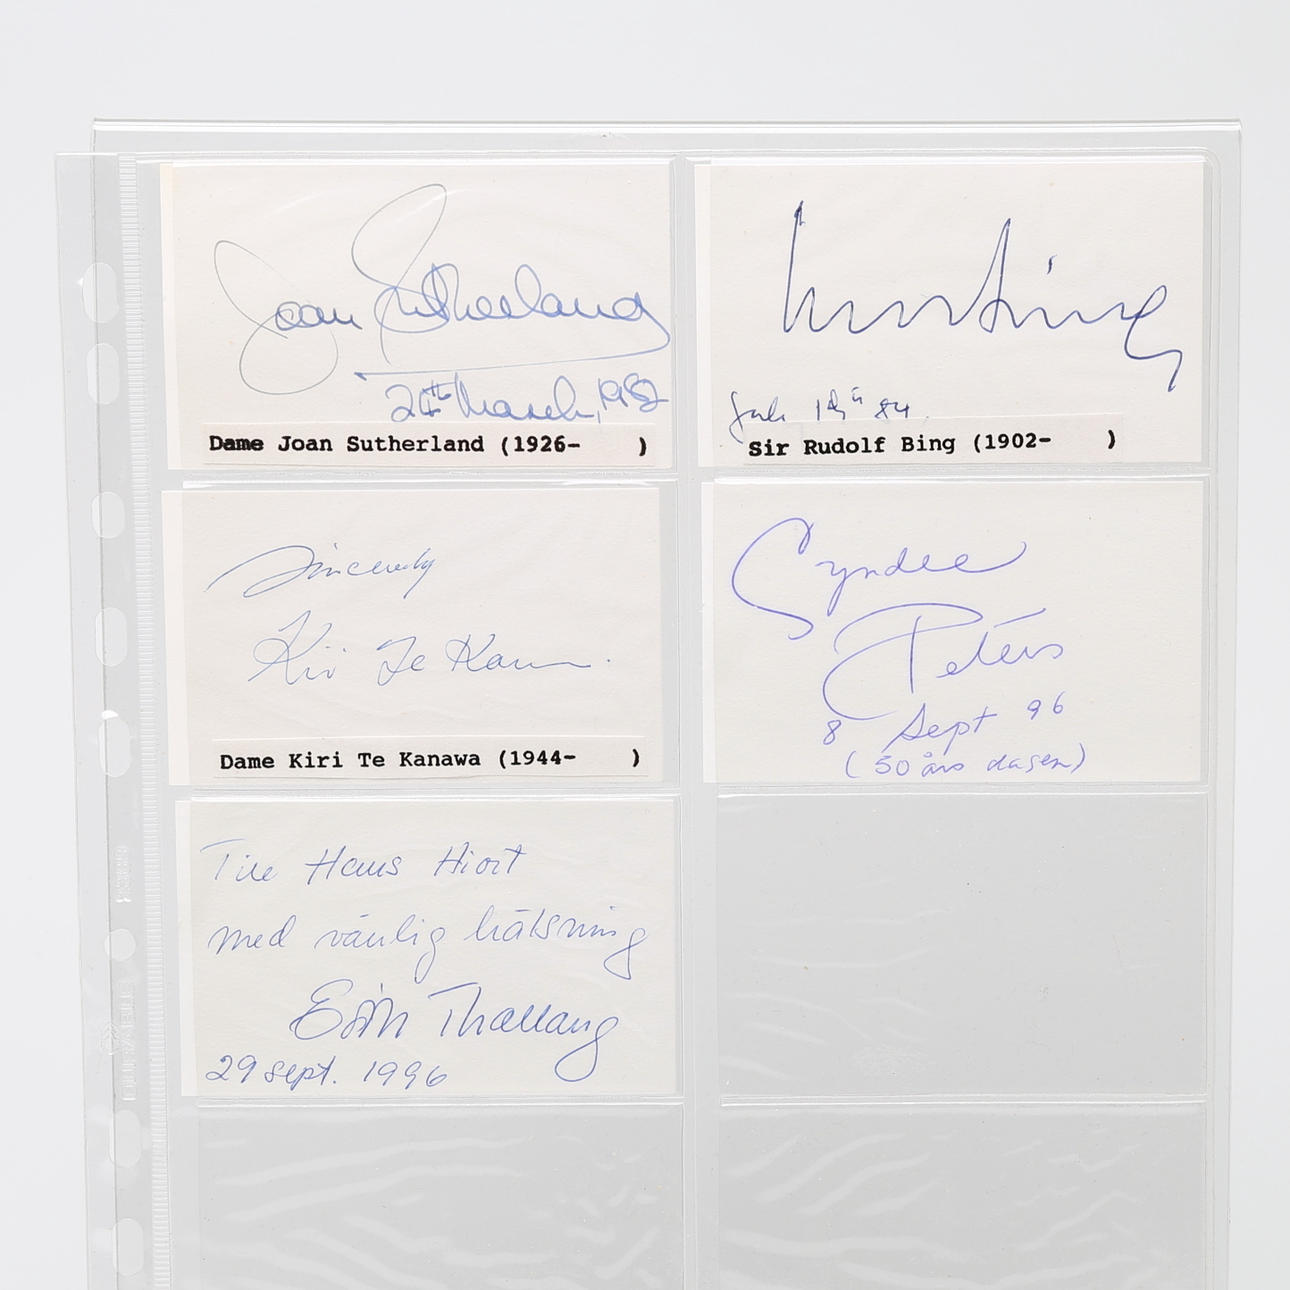 Joan Sutherland
26th March, 1982
Dame Joan Sutherland (1926-    )
Sir Rudolf Bing (1902-    )
Sincerely
Kiri Te Kanawa
Dame Kiri Te Kanawa (1944-    )
Cyndee
Peters
8 Sept 96
(50 års dagen)
Till Hans Hiort
med vänlig hälsning
Thallaug
29 sept. 1996